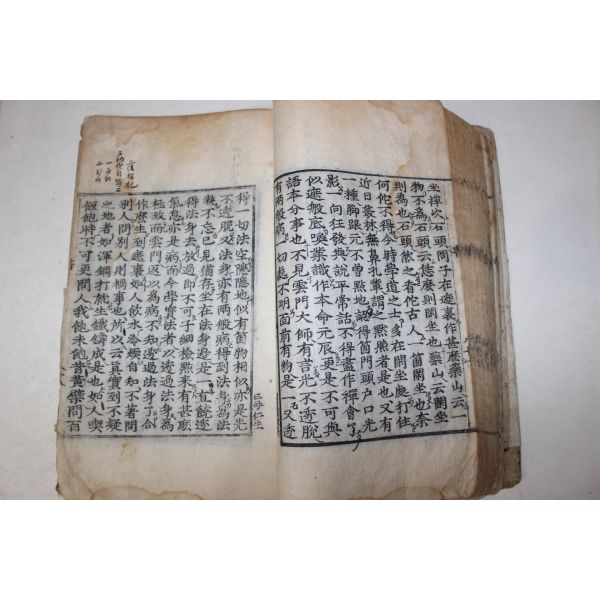 坐撑次石頭問子在遮裏作甚麼藥山云一
物不為石頭云恁麼則閑坐也藥山云閑坐
則為也石頭然之看佗古人一箇閑坐也奈
何佗不得今時學道之士多在閑坐處打住
近日叢林無鼻孔輩謂之黙照者是也又有
一種脚跟元不曽點地認得箇門頭户口光
影一向狂發與說平常話不得盡作禪會了
似遮般底喚業識作本命元辰更是不可與
語本分事也不見雲門大師有言光不透脫
有兩般病一切處不明面前有物是一又透
得一切法空隱隱地似有箇物相似亦是光
不透脫又法身亦有兩般病得到法身為法
執不忘己見猶存坐在法身邊是一直饒透
得法身去放過即不可子細檢點來有甚麼
氣息亦是病而今學實法者以透過法身為
極致而雲門返以為病不知透過法身了合
作麼生到遮裏如人飲水冷煖自知不著問
別人問別人則禍事也所以云真實到不疑
之地者如渾鋼打就生鐵鑄成是也如人喫
飯飽時不可更問人我飽未飽昔黃檗問百